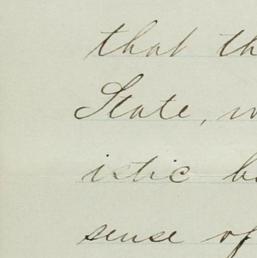 that th
State, w
istic b
sense of